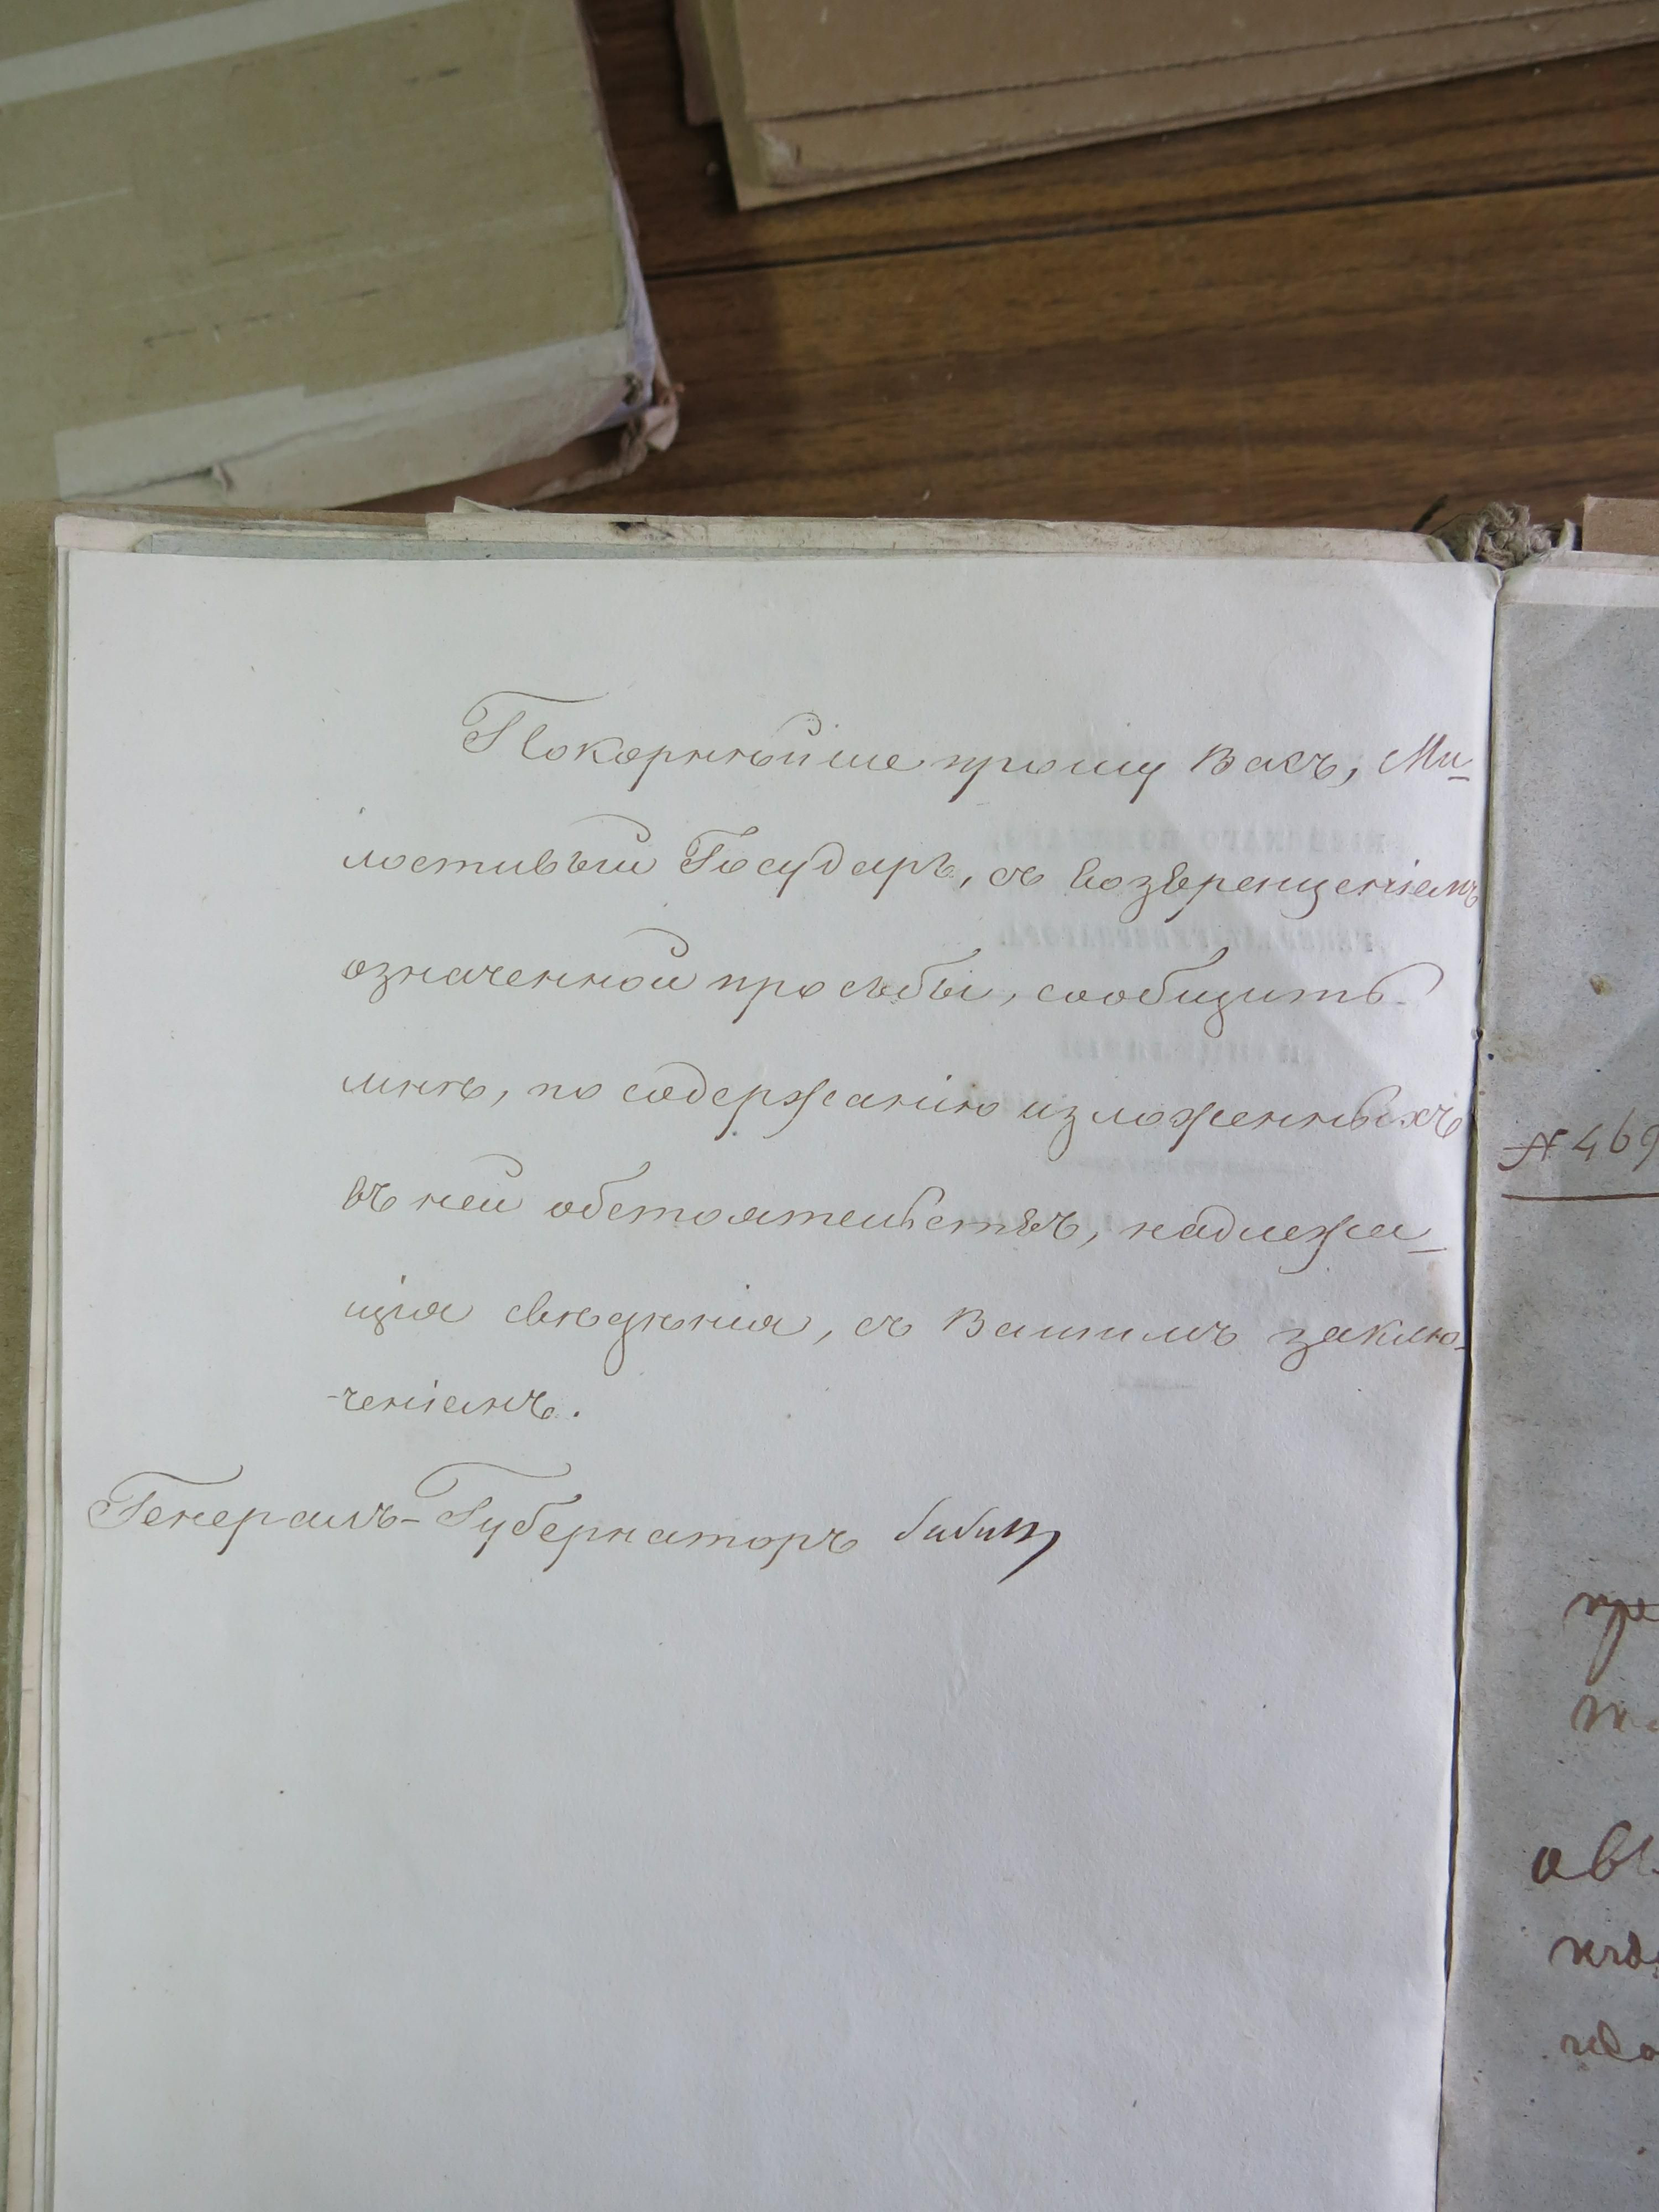 Покорнѣйше прошу Васъ, Ми-
лостивый Государь, съ возвращеніемъ
означенной просьбы, сообщить
мнѣ, по содержанію изложенныхъ
въ ней обстоятельствъ, надлежа-
щія свѣдѣнія, съ Вашимъ заклю-
-ченіемъ.
Генералъ-Губернаторъ
№ 469